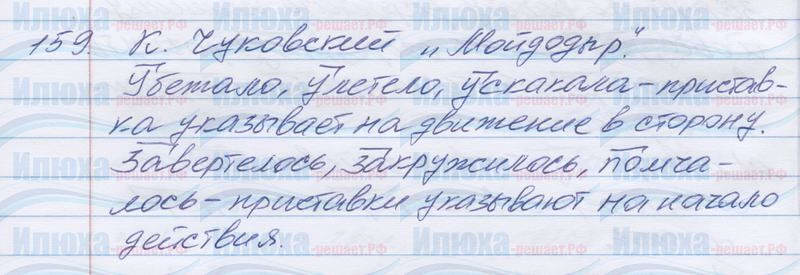 159. К. Чуковский „Мойдодыр".
Убежало, улетело, ускакала – пристав-
ка указывает на движение в сторону.
Завертелось, закружилось, помча-
лось – приставки указывают на начало
действия.
Илюха-решает.РФ